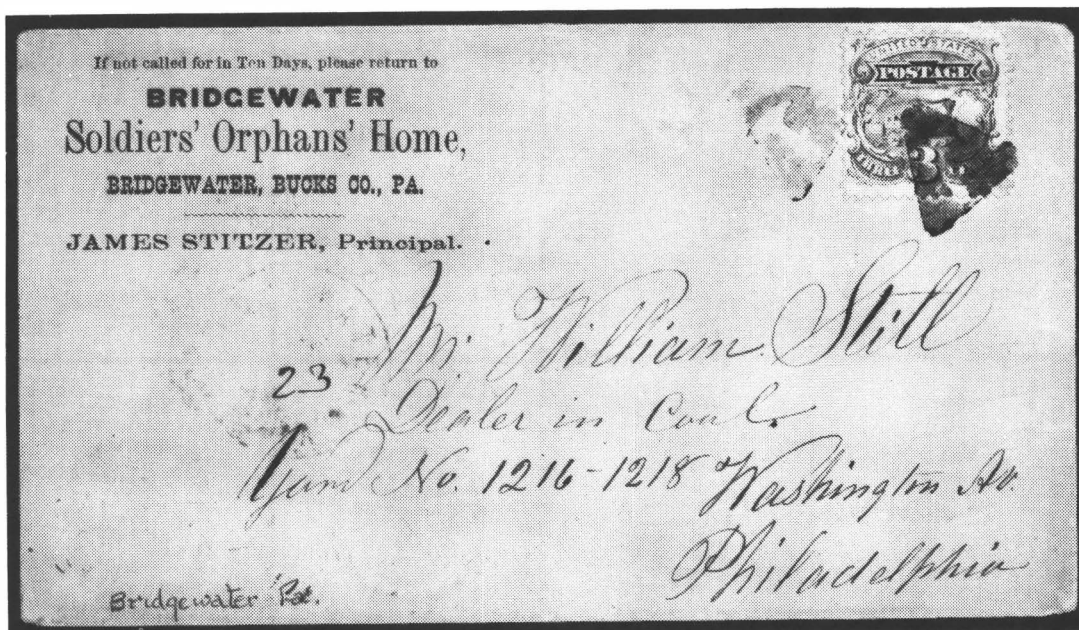 If not called for in Ten Days, please return to
BRIDGEWATER
Soldiers' Orphans' Home,
BRIDGEWATER, BUCKS CO., PA.
JAMES STITZER, Principal.
UNITED STATES
POSTAGE
THREE
3
Mr. William Still
23
Dealer in Coal.
Yard No. 1216-1218 Washington Av.
Philadelphia
Bridgewater Pa.